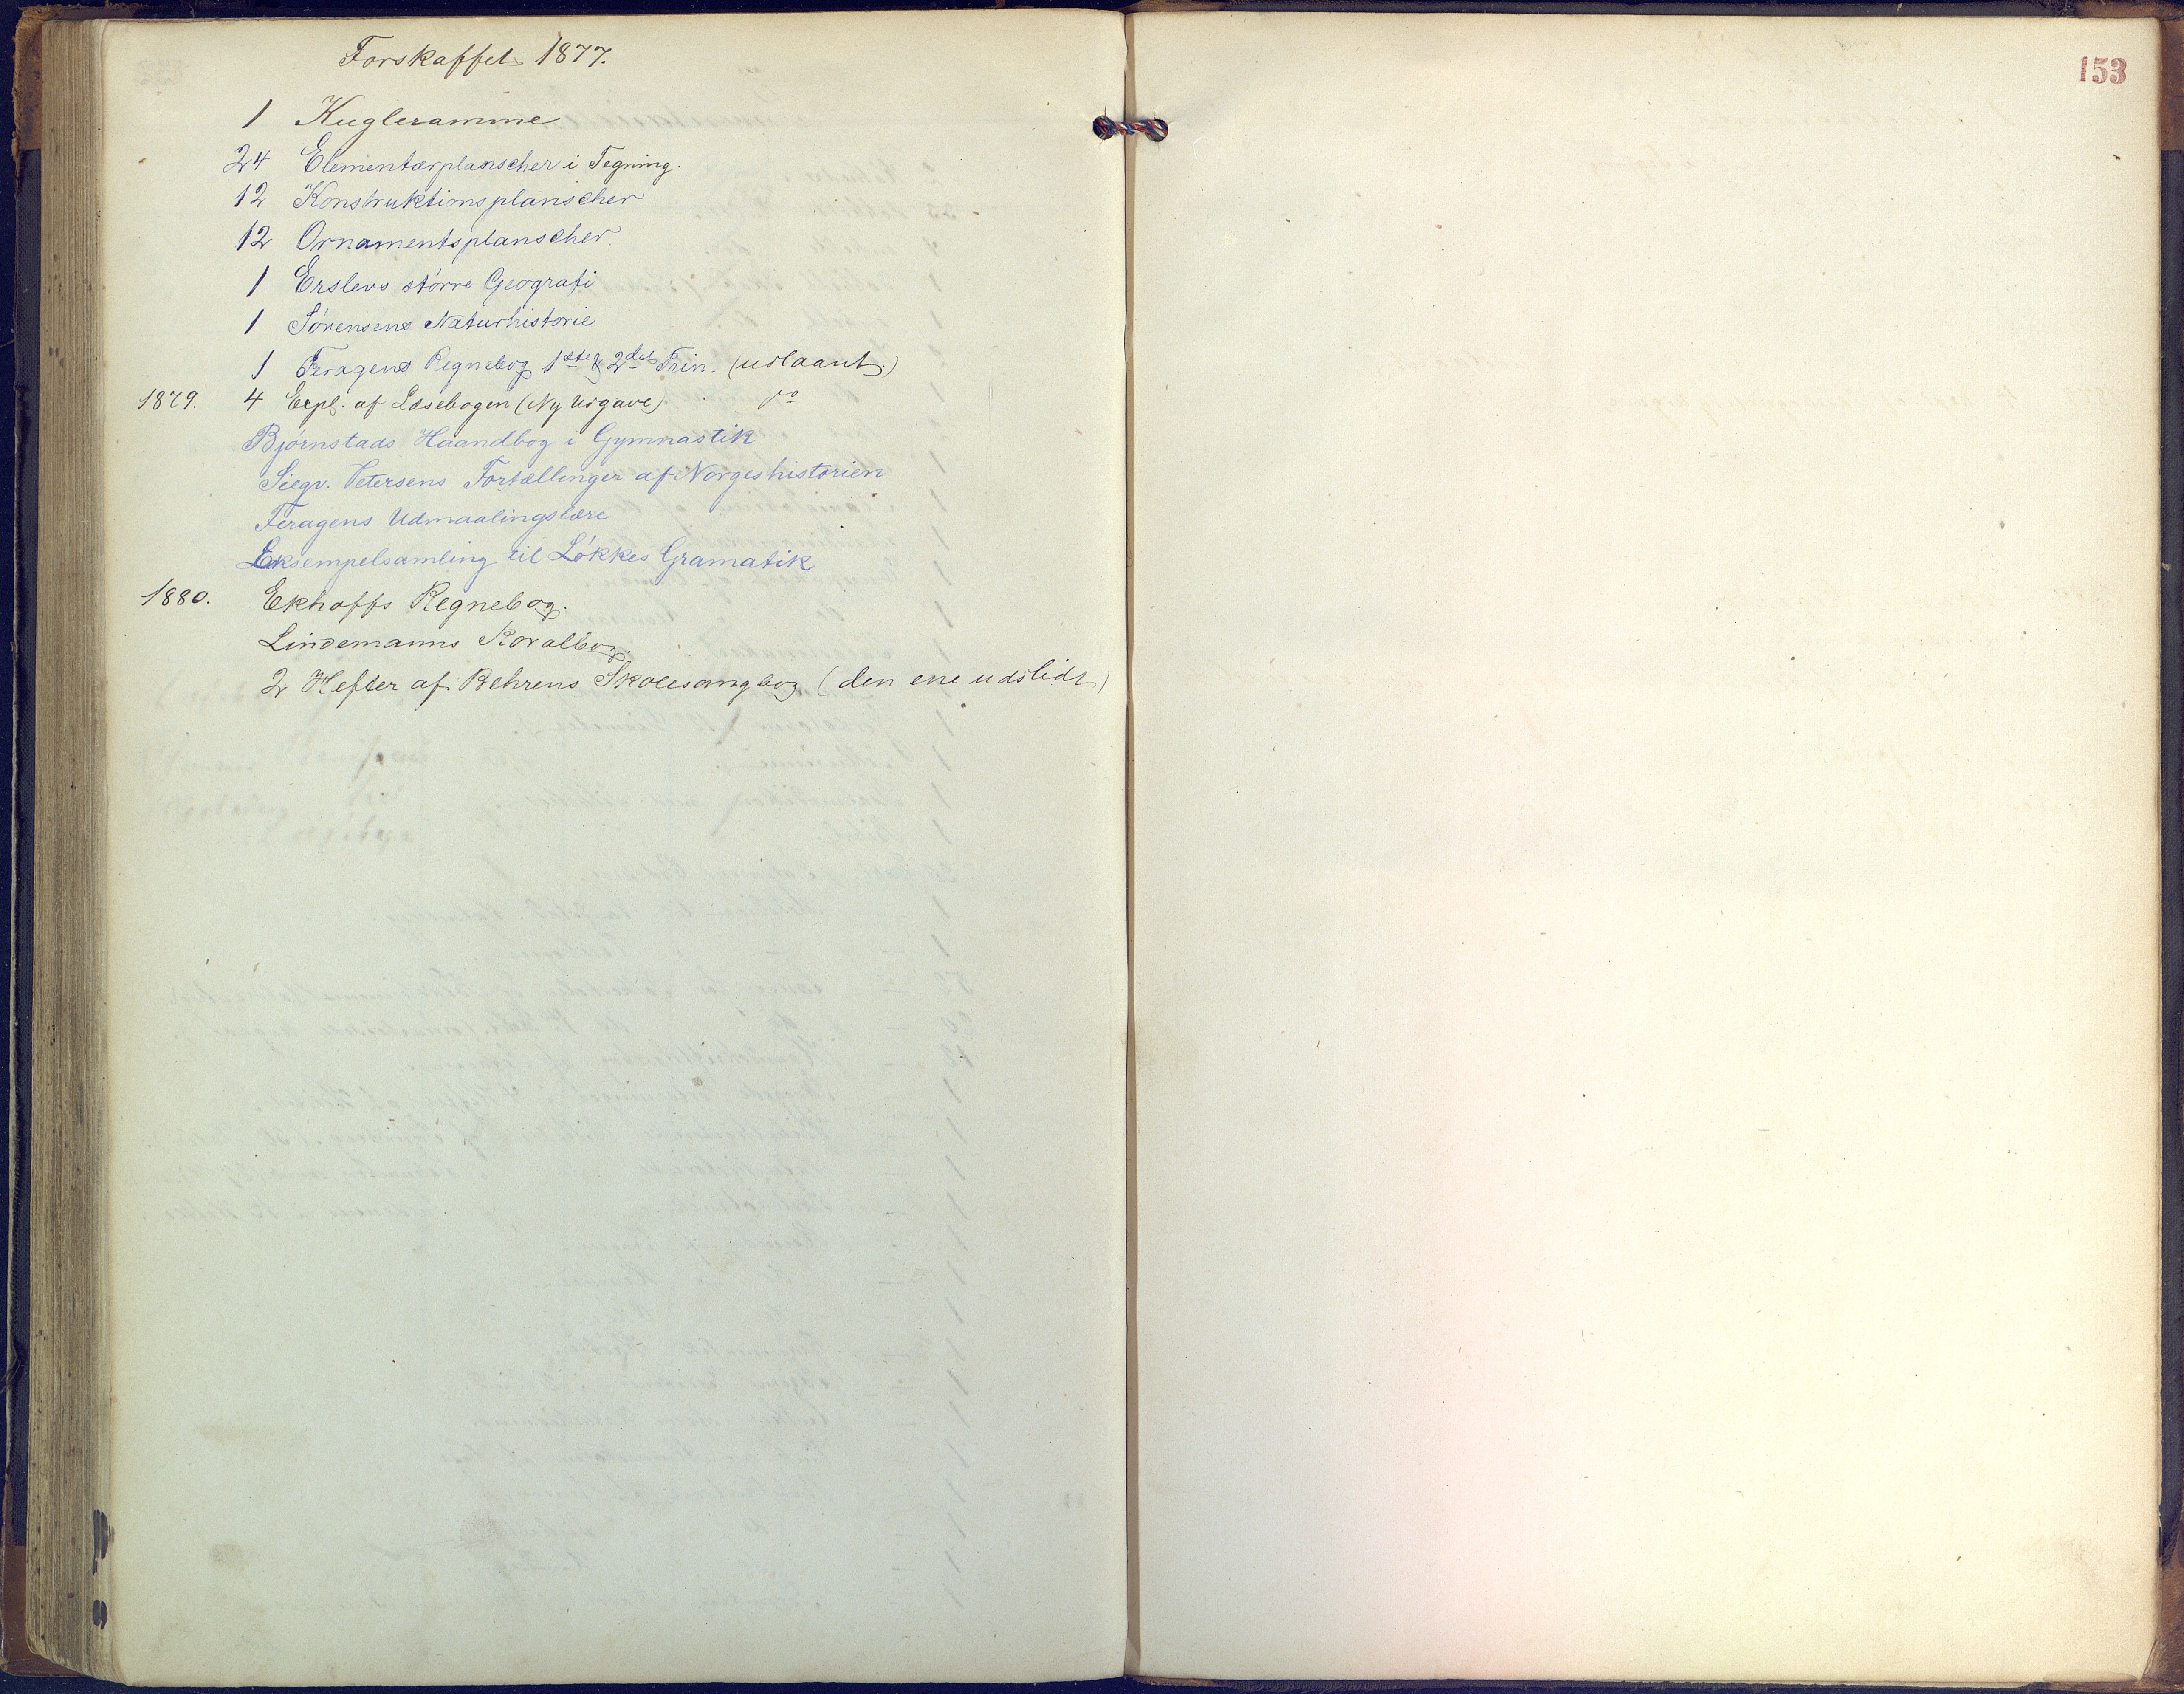 Forskaffet 1877.
1 Kugleramme
24 Elementærplanscher i Tegning.
12 Konstruktionsplanscher
12 Ornamentsplanscher.
1 Erslevs större Geografi
1 Sörensens Naturhistorie
1 Feragens Regnebog 1ste & 2det Trin. (udlaant.)
1879. 4 Expl. af Læsebogen (Ny Udgave) do
Björnstads Haandbog i Gymnastik
Siegv. Petersens Fortællinger af Norgeshistorien
Feragens Udmaalingslære
Eksempelsamling til Lökkes Gramatik
1880. Ekhoffs Regnebog.
Lindemanns Koralbog.
2 Hefter af Behrens Skolesangbog (den ene udslidt)
153